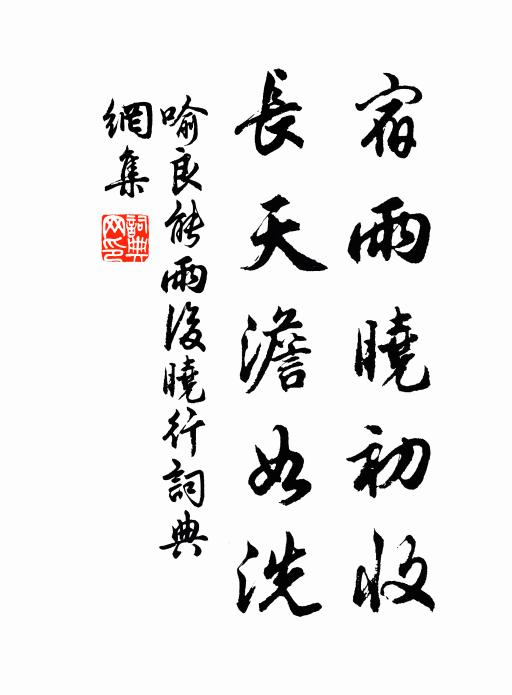 宿雨曉初收
長天澹如洗
喻良能雨後曉行詞典
網集
詞典
网印